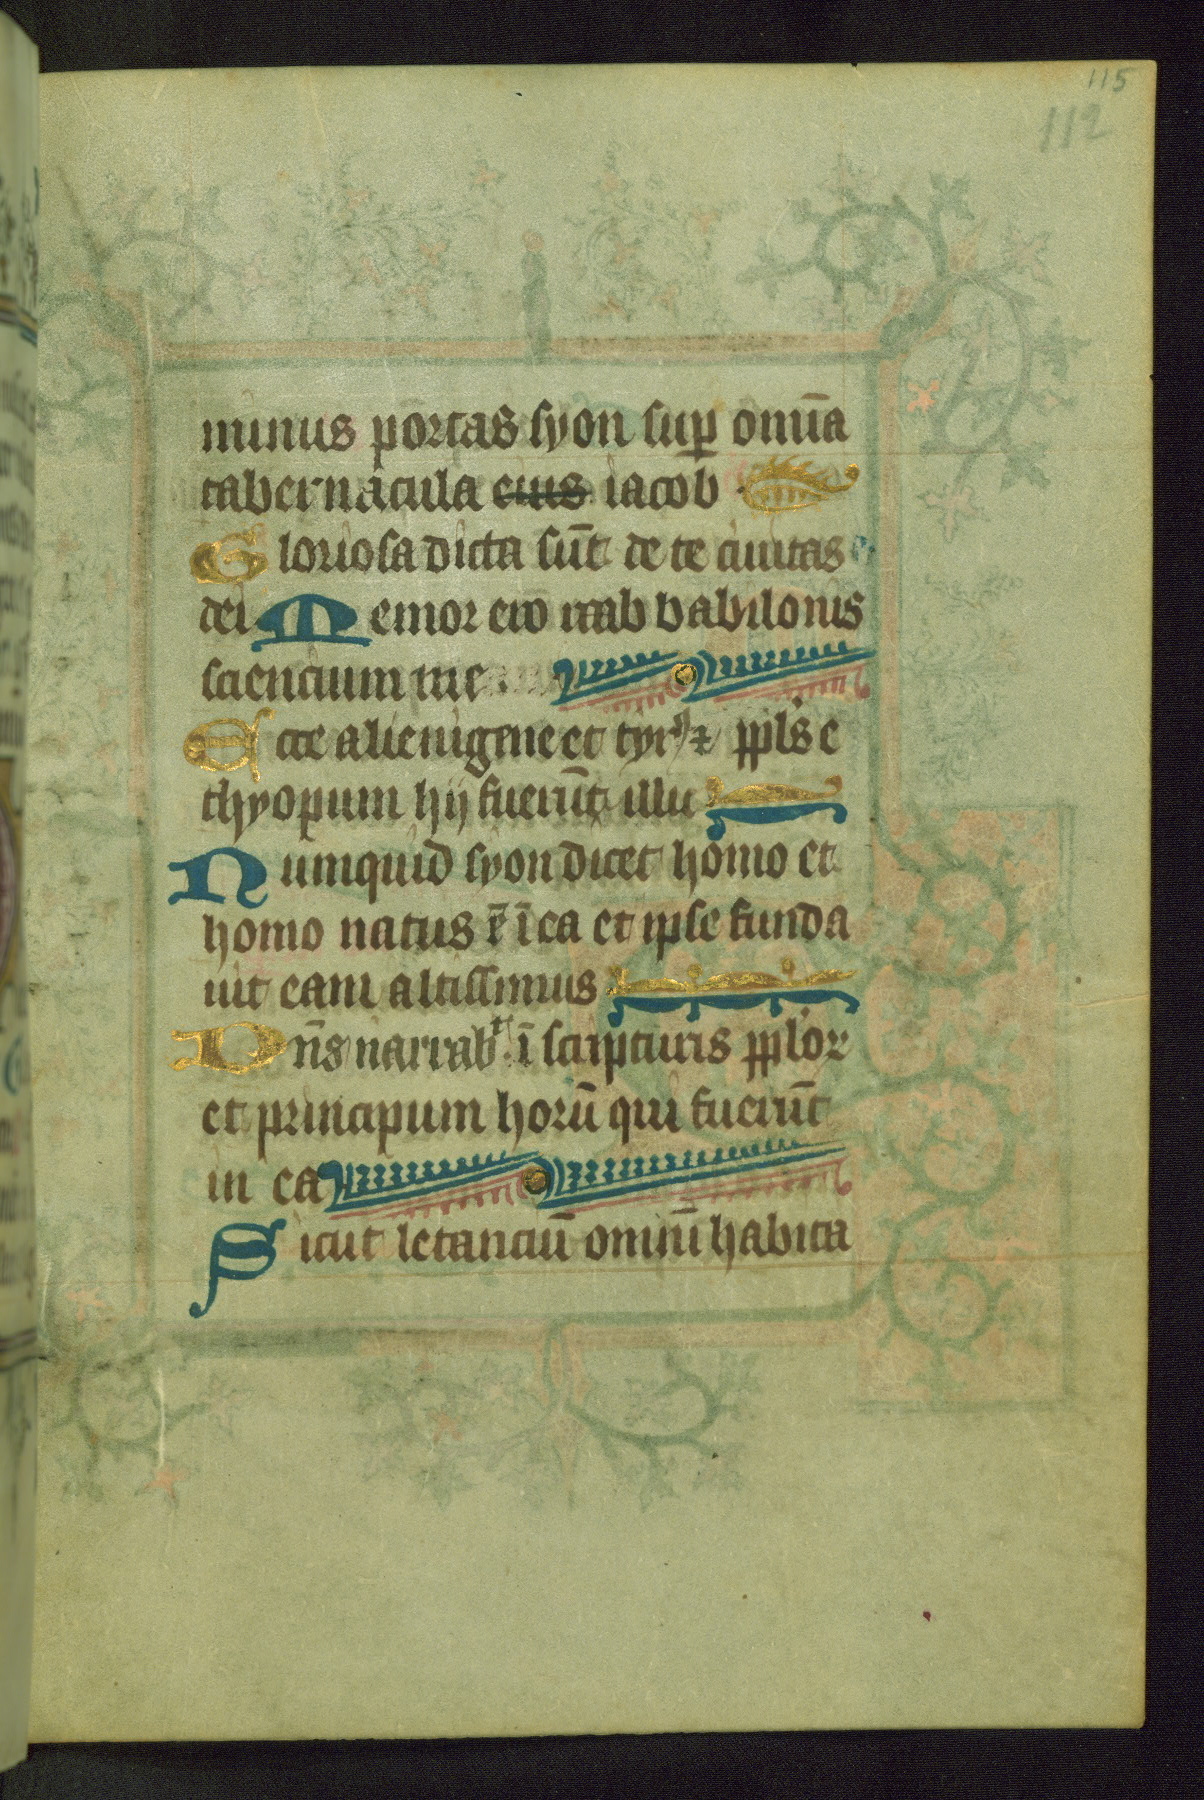 115
112
minus portas syon sup̄ om̄ia
tabernacula eius iacob
Gloriosa dicta su̅t de te ciuitas
dei Memor ero raab babilonis
sciencium me
Ecce alienigene et tyr⁹ ⁊ pp̄ls e
thyopum hij fueru̅t illic
Numquid syon dicet homo et
homo natus ē ī ea et ipse funda
uit eam altissimus
Dn̄s narrabᵗ ī scripturis pp̄lor
et principum horū qui fueru̅t
in ea
Sicut letanciū omniū habita